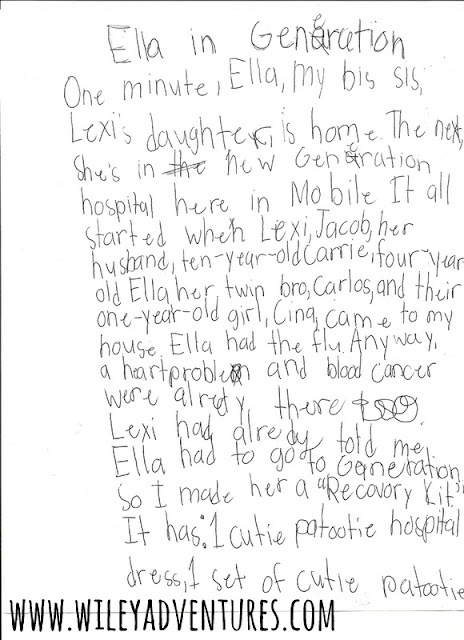 Ella in Generation
One minute, Ella, my bis sis,
Lexi's daughter, is home. The next,
she's in the new Generation
hospital here in Mobile It all
started when Lexi, Jacob, her
husband, ten-year-old Carrie, four-year
old Ella her twin bro, Carlos, and their
one-year-old girl, Cina, came to my
house. Ella had the flu. Anyway,
a heart problem and blood cancer
were alredy there
Lexi had alredy told me
Ella had to go to Generation
So I made her a "Recovory Kit."
It has: 1 cutie patootie hospital
dress, 1 set of cutie patootie
WWW.WILEYADVENTURES.COM